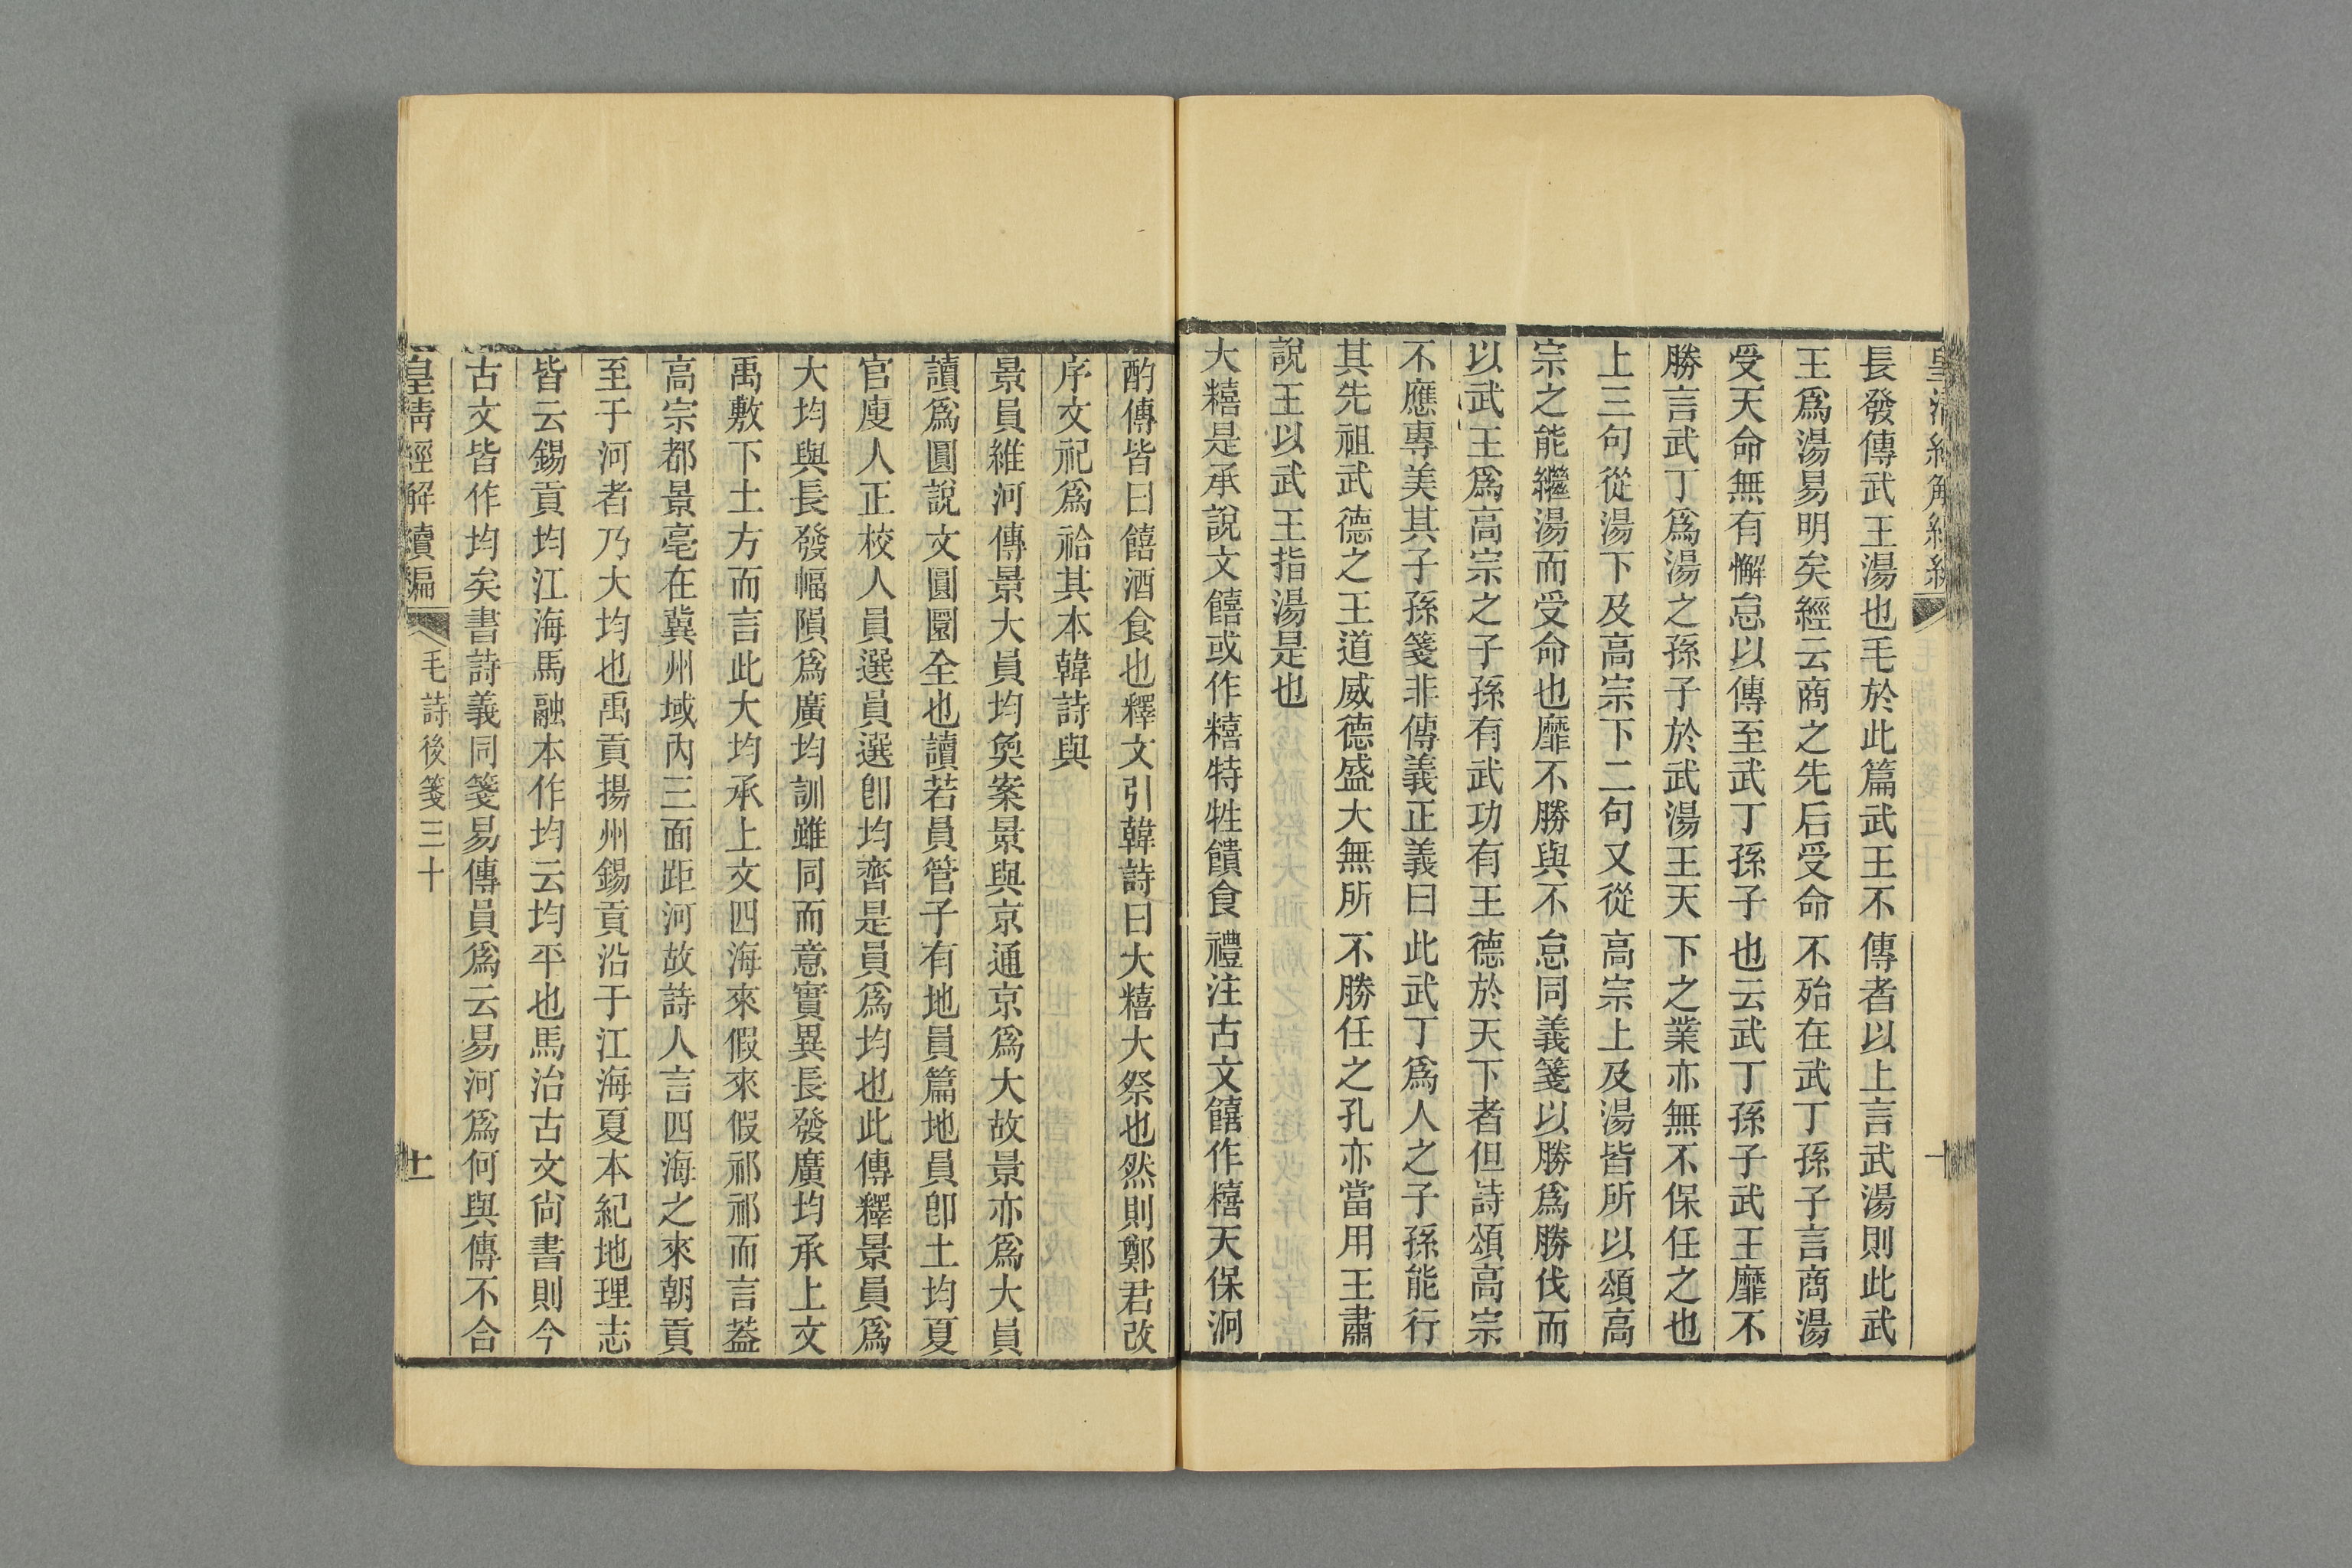 長發傳武王湯也毛於此篇武王不傳者以上言武湯則此武
王爲湯易明矣經云商之先后受命不殆在武丁孫子言商湯
受天命無有懈怠以傳至武丁孫子也云武丁孫子武王靡不
勝言武丁爲湯之孫子於武湯王天下之業亦無不保任之也
上三句從湯下及高宗下二句又從高宗上及湯皆所以頌高
宗之能繼湯而受命也靡不勝與不怠同義箋以勝爲勝伐而
以武王爲高宗之子孫有武功有王德於天下者但詩頌高宗
不應專美其子孫箋非傳義正義曰此武丁爲人之子孫能行
其先祖武德之王道威德盛大無所不勝任之孔亦當用王肅
說王以武王指湯是也
大糦是承說文饎或作糦特牲饋食禮注古文饎作糦天保泂
酌傳皆曰饎酒食也釋文引韓詩曰大糦大祭也然則鄭君改
序文祀爲祫其本韓詩與
景員維河傳景大員均奐案景與京通京爲大故景亦爲大員
讀爲圓說文圓圜全也讀若員管子有地員篇地員卽土均夏
官廋人正校人員選員選卽均齊是員爲均也此傳釋景員爲
大均與長發幅隕爲廣均均訓雖同而意實異長發廣均承上文
禹敷下土方而言此大均承上文四海來假來假祁祁而言葢
高宗都景亳在冀州域內三面距河故詩人言四海之來朝貢
至于河者乃大均也禹貢揚州錫貢沿于江海夏本紀地理志
皆云錫貢均江海馬融本作均云均平也馬治古文尙書則今
古文皆作均矣書詩義同箋易傳員爲云易河爲何與傳不合
皇清經解續編
毛詩後箋三十
十一